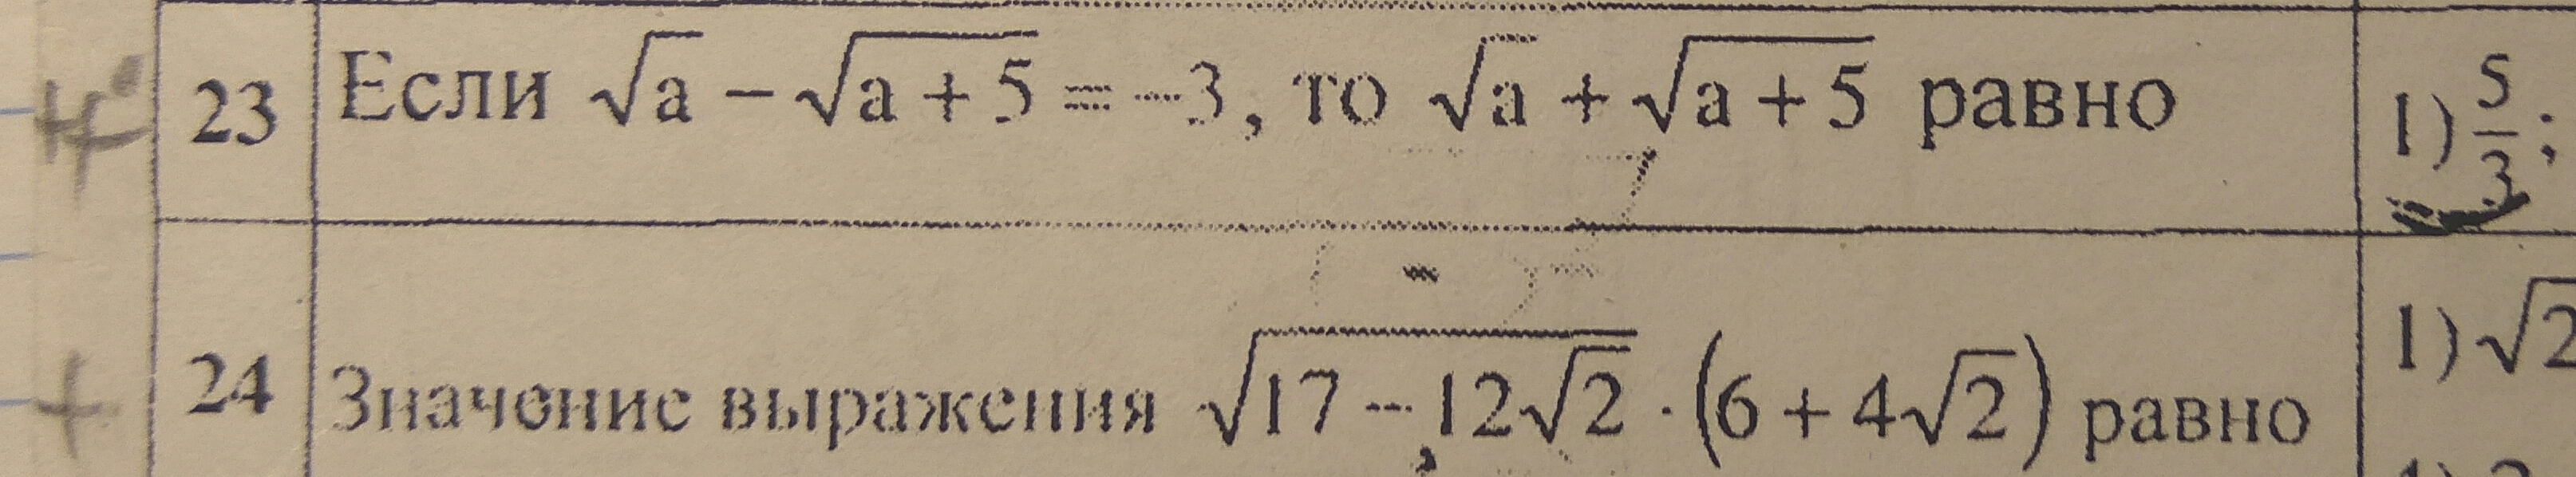 23 Если √a − √(a + 5) = −3, то √a + √(a + 5) равно 1) 5/3;
24 Значение выражения √(17 − 12√2) · (6 + 4√2) равно 1) √2